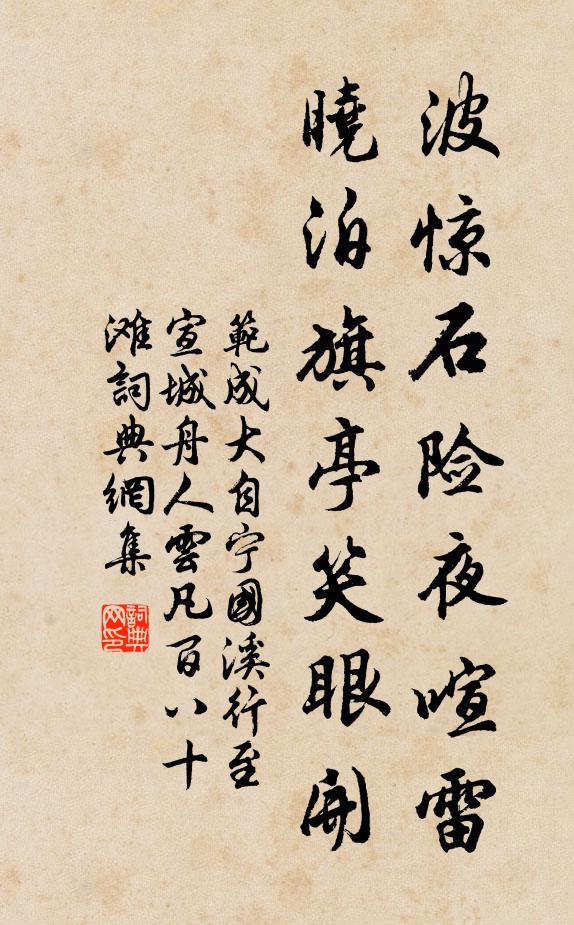 波惊石险夜喧雷
曉泊旗亭笑眼開
範成大自宁國溪行至
宣城舟人雲凡百八十
滩詞典網集
詞典
网印